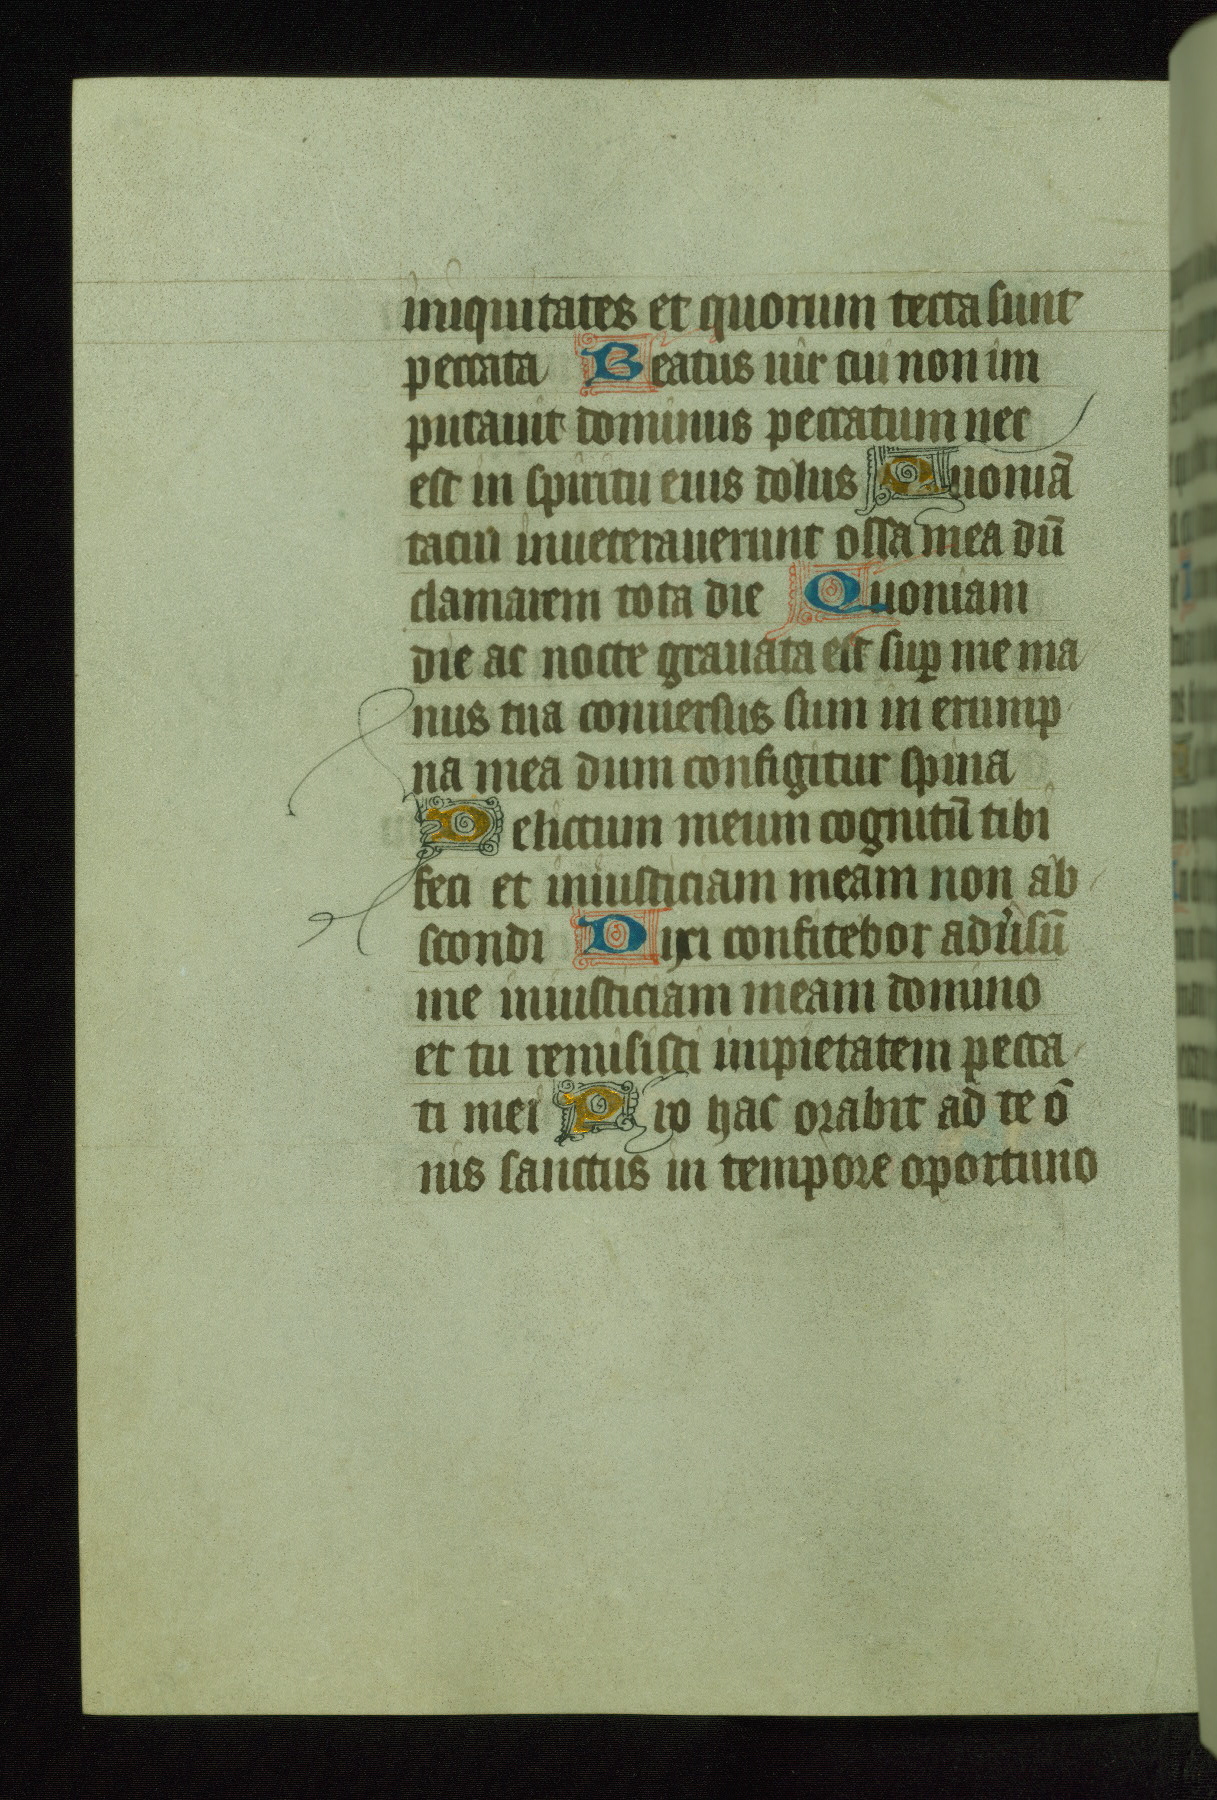 iniquitates et quorum tecta sunt
peccata Beatus uir cui non im
putauit dominus peccatum nec
est in spiritu eius dolus Quoniā
tacui inueterauerunt ossa mea dū
clamarem tota die Quoniam
die ac nocte grauata est suꝑ me ma
nus tua conuersus sum in erump
na mea dum configitur spina
Delictum meum cognitū tibi
feci et iniusticiam meam non ab
scondi Dixi confitebor adu'sū
me iniusticiam meam domino
et tu remisisti impietatem pecca
ti mei Pro hac orabit ad te ō
nis sanctus in tempore oportuno